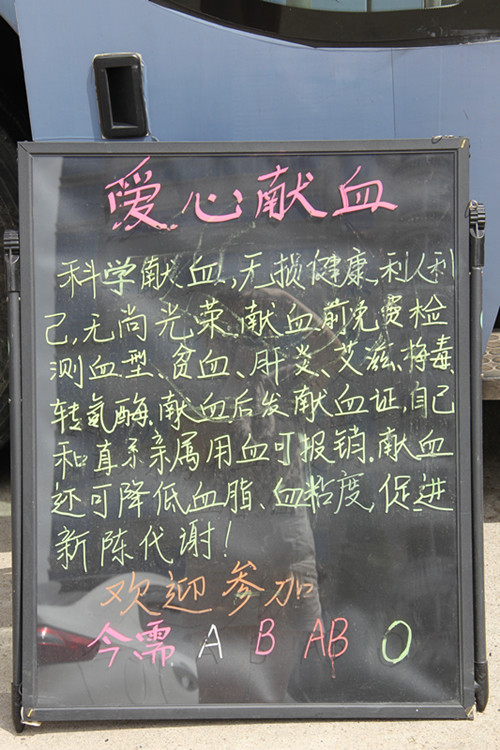 爱心献血
科学献血,无损健康,利人利
己,无尚光荣.献血前免费检
测血型、贫血、肝炎、艾滋、梅毒、
转氨酶.献血后发献血证,自己
和直系亲属用血可报销.献血
还可降低血脂、血粘度,促进
新陈代谢!
欢迎参加
今需 A B AB O